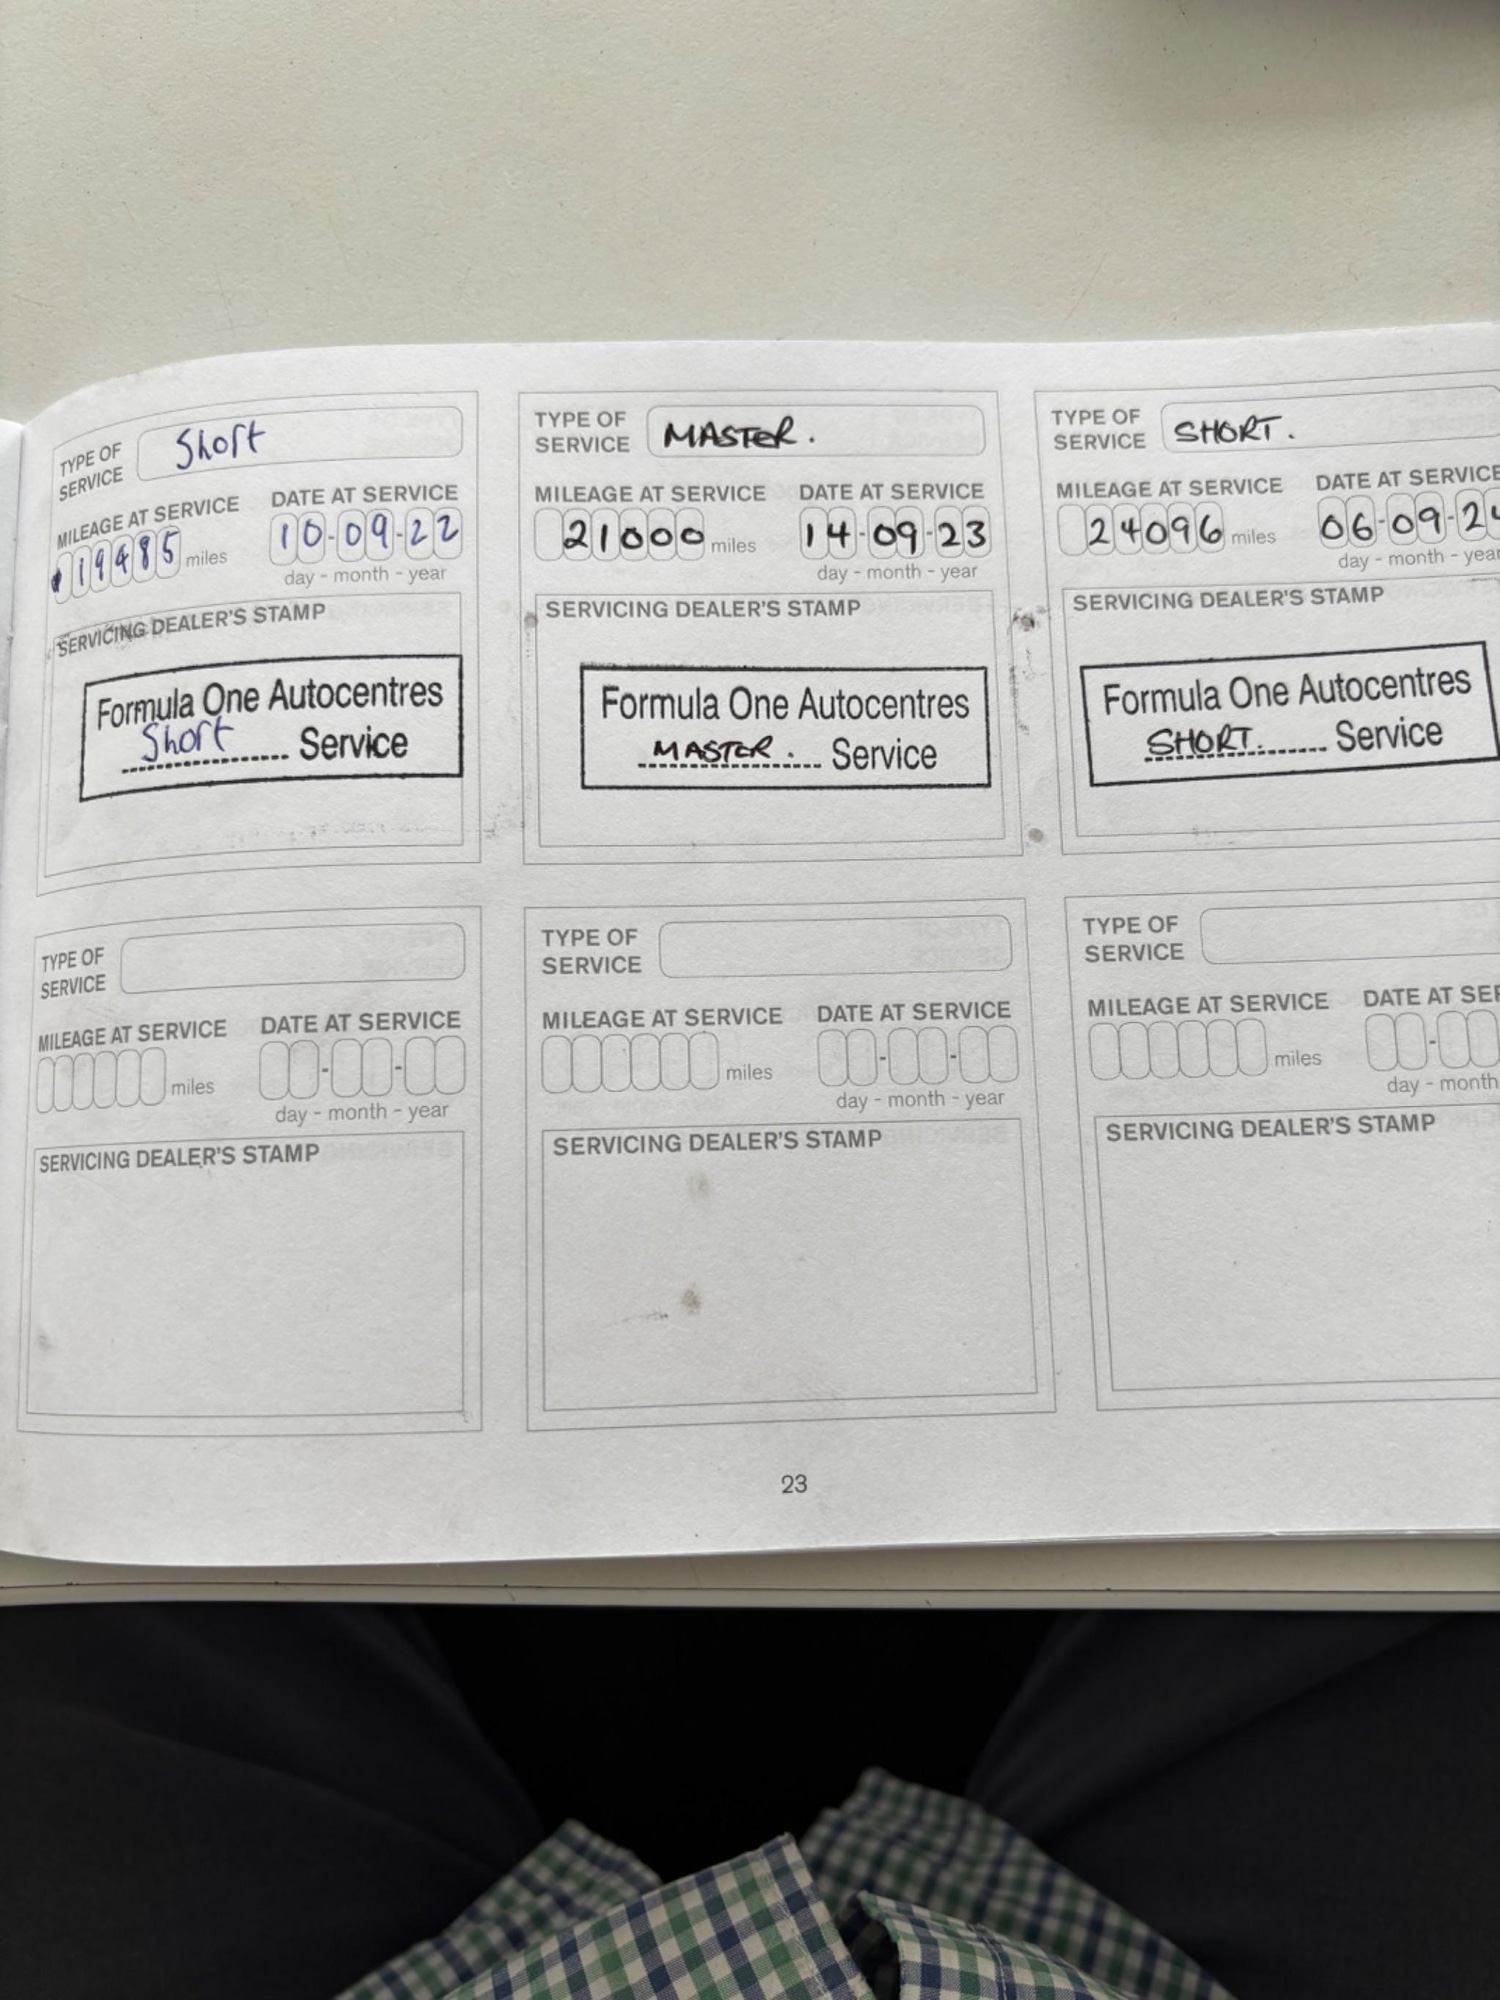 TYPE OF SERVICE Short
MILEAGE AT SERVICE DATE AT SERVICE
19485 miles 10-09-22
day - month - year
SERVICING DEALER'S STAMP
Formula One Autocentres
Short Service
TYPE OF SERVICE MASTER.
MILEAGE AT SERVICE DATE AT SERVICE
21000 miles 14-09-23
day - month - year
SERVICING DEALER'S STAMP
Formula One Autocentres
MASTER. Service
TYPE OF SERVICE SHORT.
MILEAGE AT SERVICE DATE AT SERVICE
24096 miles 06-09-24
day - month - year
SERVICING DEALER'S STAMP
Formula One Autocentres
SHORT. Service
TYPE OF SERVICE
MILEAGE AT SERVICE DATE AT SERVICE
miles - -
day - month - year
SERVICING DEALER'S STAMP
TYPE OF SERVICE
MILEAGE AT SERVICE DATE AT SERVICE
miles - -
day - month - year
SERVICING DEALER'S STAMP
TYPE OF SERVICE
MILEAGE AT SERVICE DATE AT SER
miles -
day - month
SERVICING DEALER'S STAMP
23